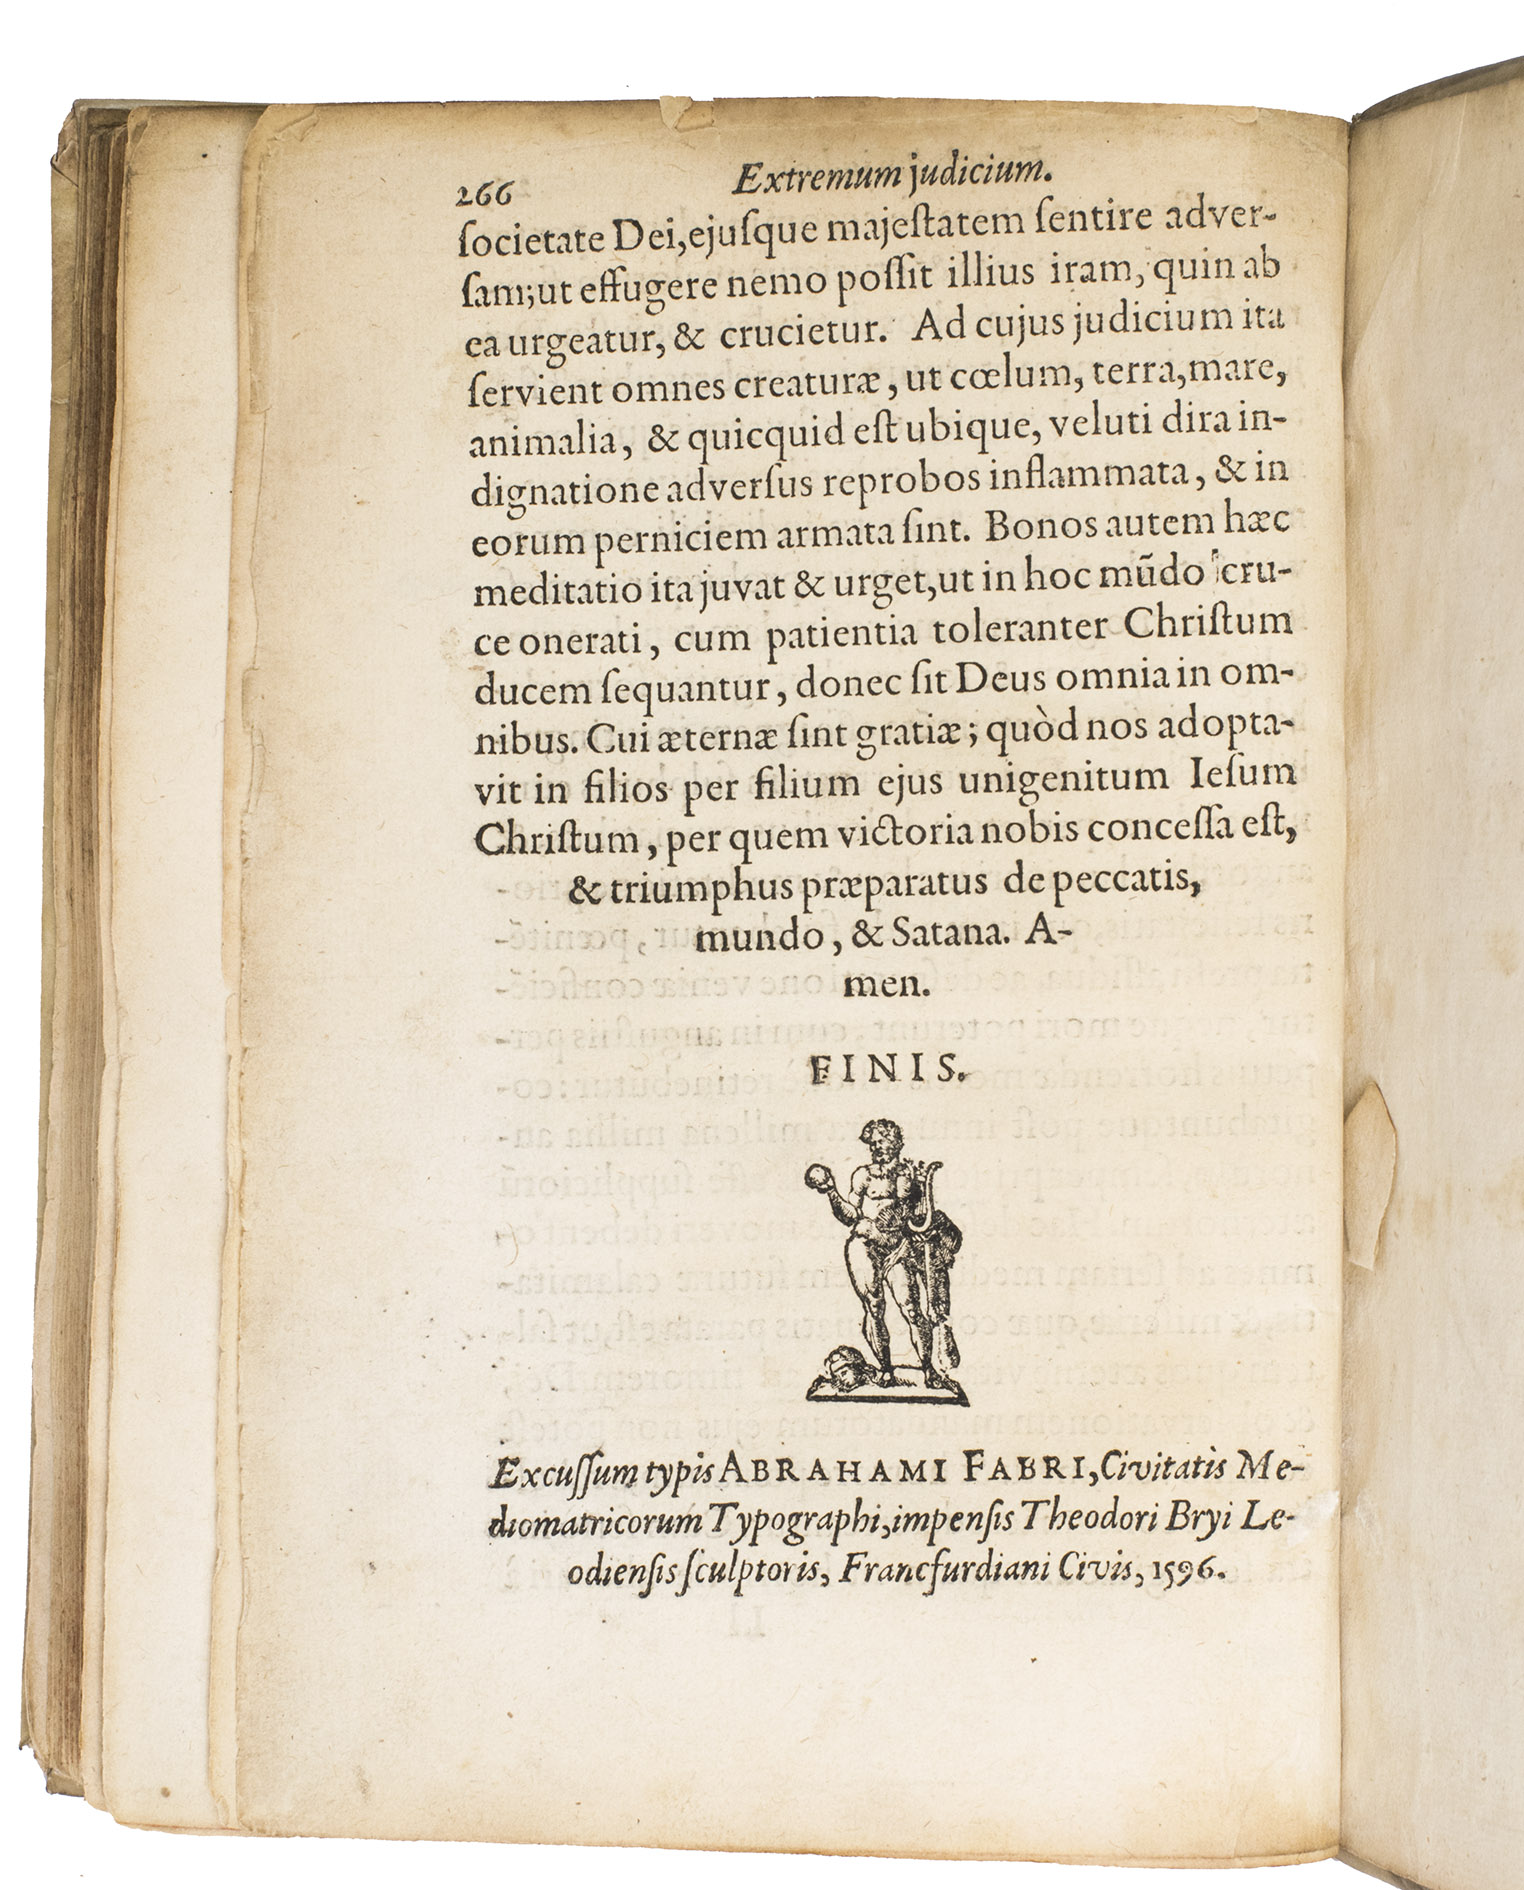 266 Extremum judicium.
ſocietate Dei,ejuſque majeſtatem ſentire adver-
ſam;ut effugere nemo poſſit illius iram, quin ab
ea urgeatur, & crucietur. Ad cujus judicium ita
ſervient omnes creaturæ, ut cœlum, terra,mare,
animalia, & quicquid eſt ubique, veluti dira in-
dignatione adverſus reprobos inflammata, & in
eorum perniciem armata ſint. Bonos autem hæc
meditatio ita juvat & urget,ut in hoc mũdo cru-
ce onerati, cum patientia toleranter Chriſtum
ducem ſequantur, donec ſit Deus omnia in om-
nibus. Cui æternæ ſint gratiæ; quòd nos adopta-
vit in filios per filium ejus unigenitum Ieſum
Chriſtum, per quem victoria nobis conceſſa eſt,
& triumphus præparatus de peccatis,
mundo, & Satana. A-
men.
FINIS.
Excuſſum typis ABRAHAMI FABRI, Civitatis Me-
diomatricorum Typographi,impenſis Theodori Bryi Le-
odienſis ſculptoris, Francfurdiani Civis, 1596.